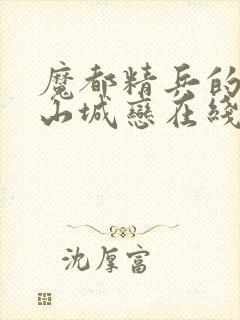 魔都精兵的
山城戀在綫
沈厚富